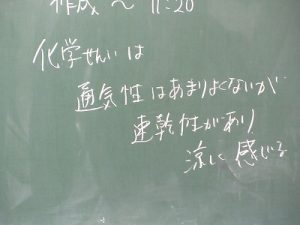 作成〜11:20
化学せんいは
通気性はあまりよくないが
速乾性があり
涼しく感じる